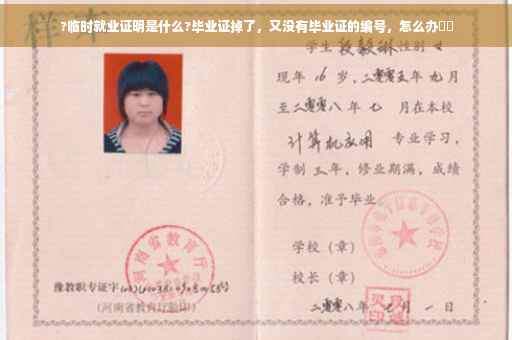 ?临时就业证明是什么?毕业证掉了，又没有毕业证的编号，怎么办□□
学生 段毅琳 性别 女
现年 16 岁，二零零五年 九月
至二零零八年 七 月在本校
计算机应用 专业学习，
学制 三 年，修业期满，成绩
合格，准予毕业
河南省教育厅
学校（章）
校长（章）
豫教职专证字
（河南省教育厅验印）
二零零八年 七 月 一 日